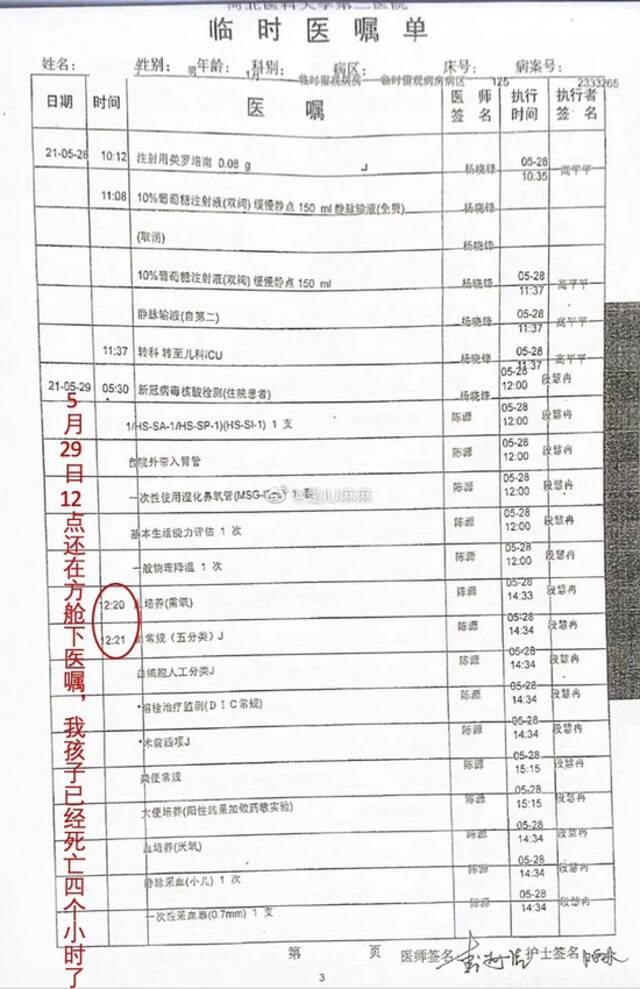 河北医科大学第二医院
临时医嘱单
姓名： 性别： 男 年龄： 1月 科别： 临时留观病房 病区： 临时留观病房病区 床号： 125 病案号： 2333265
日期 时间 医嘱 医师签名 执行时间 执行者签名
21-05-28 10:12 注射用美罗培南 0.08 g 杨晓锋 05-28 10:35 高平平
11:08 10%葡萄糖注射液(双阀) 缓慢静点 150 ml 静脉输液(免费) 杨晓锋
(取消) 杨晓锋
10%葡萄糖注射液(双阀) 缓慢静点 150 ml 杨晓锋 05-28 11:37 高平平
静脉输液(自第二) 杨晓锋 05-28 11:37 高平平
11:37 转科 转至儿科ICU 杨晓锋 05-28 11:37 高平平
21-05-29 05:30 新冠病毒核酸检测(住院患者) 杨晓锋 05-28 12:00 段慧冉
1/HS-SA-1/HS-SP-1)(HS-SI-1) 1 支 陈源 05-28 12:00 段慧冉
自院外带入胃管 陈源 05-28 12:00 段慧冉
一次性使用湿化鼻氧管(MSG- 1 套 陈源 05-28 12:00 段慧冉
基本生活能力评估 1 次 陈源 05-28 12:00 段慧冉
一般物理降温 1 次 陈源 05-28 12:00 段慧冉
12:20 血培养(需氧) 陈源 05-28 14:33 段慧冉
12:21 血常规（五分类）J 陈源 05-28 14:34 段慧冉
白细胞人工分类J 陈源 05-28 14:34 段慧冉
溶栓治疗监测(DIC常规) 陈源 05-28 14:34 段慧冉
术前四项J 陈源 05-28 14:34 段慧冉
粪便常规 陈源 05-28 15:15 段慧冉
大便培养(阳性结果加做药敏实验) 陈源 05-28 15:15 段慧冉
血培养(厌氧) 陈源 05-28 14:34 段慧冉
静脉采血(小儿) 1 次 陈源 05-28 14:34 段慧冉
一次性采血器(0.7mm) 1 支 陈源 05-28 14:34 段慧冉
第 页 医师签名 护士签名
3
5月29目12点还在方舱下医嘱，我孩子已经死亡四个小时了